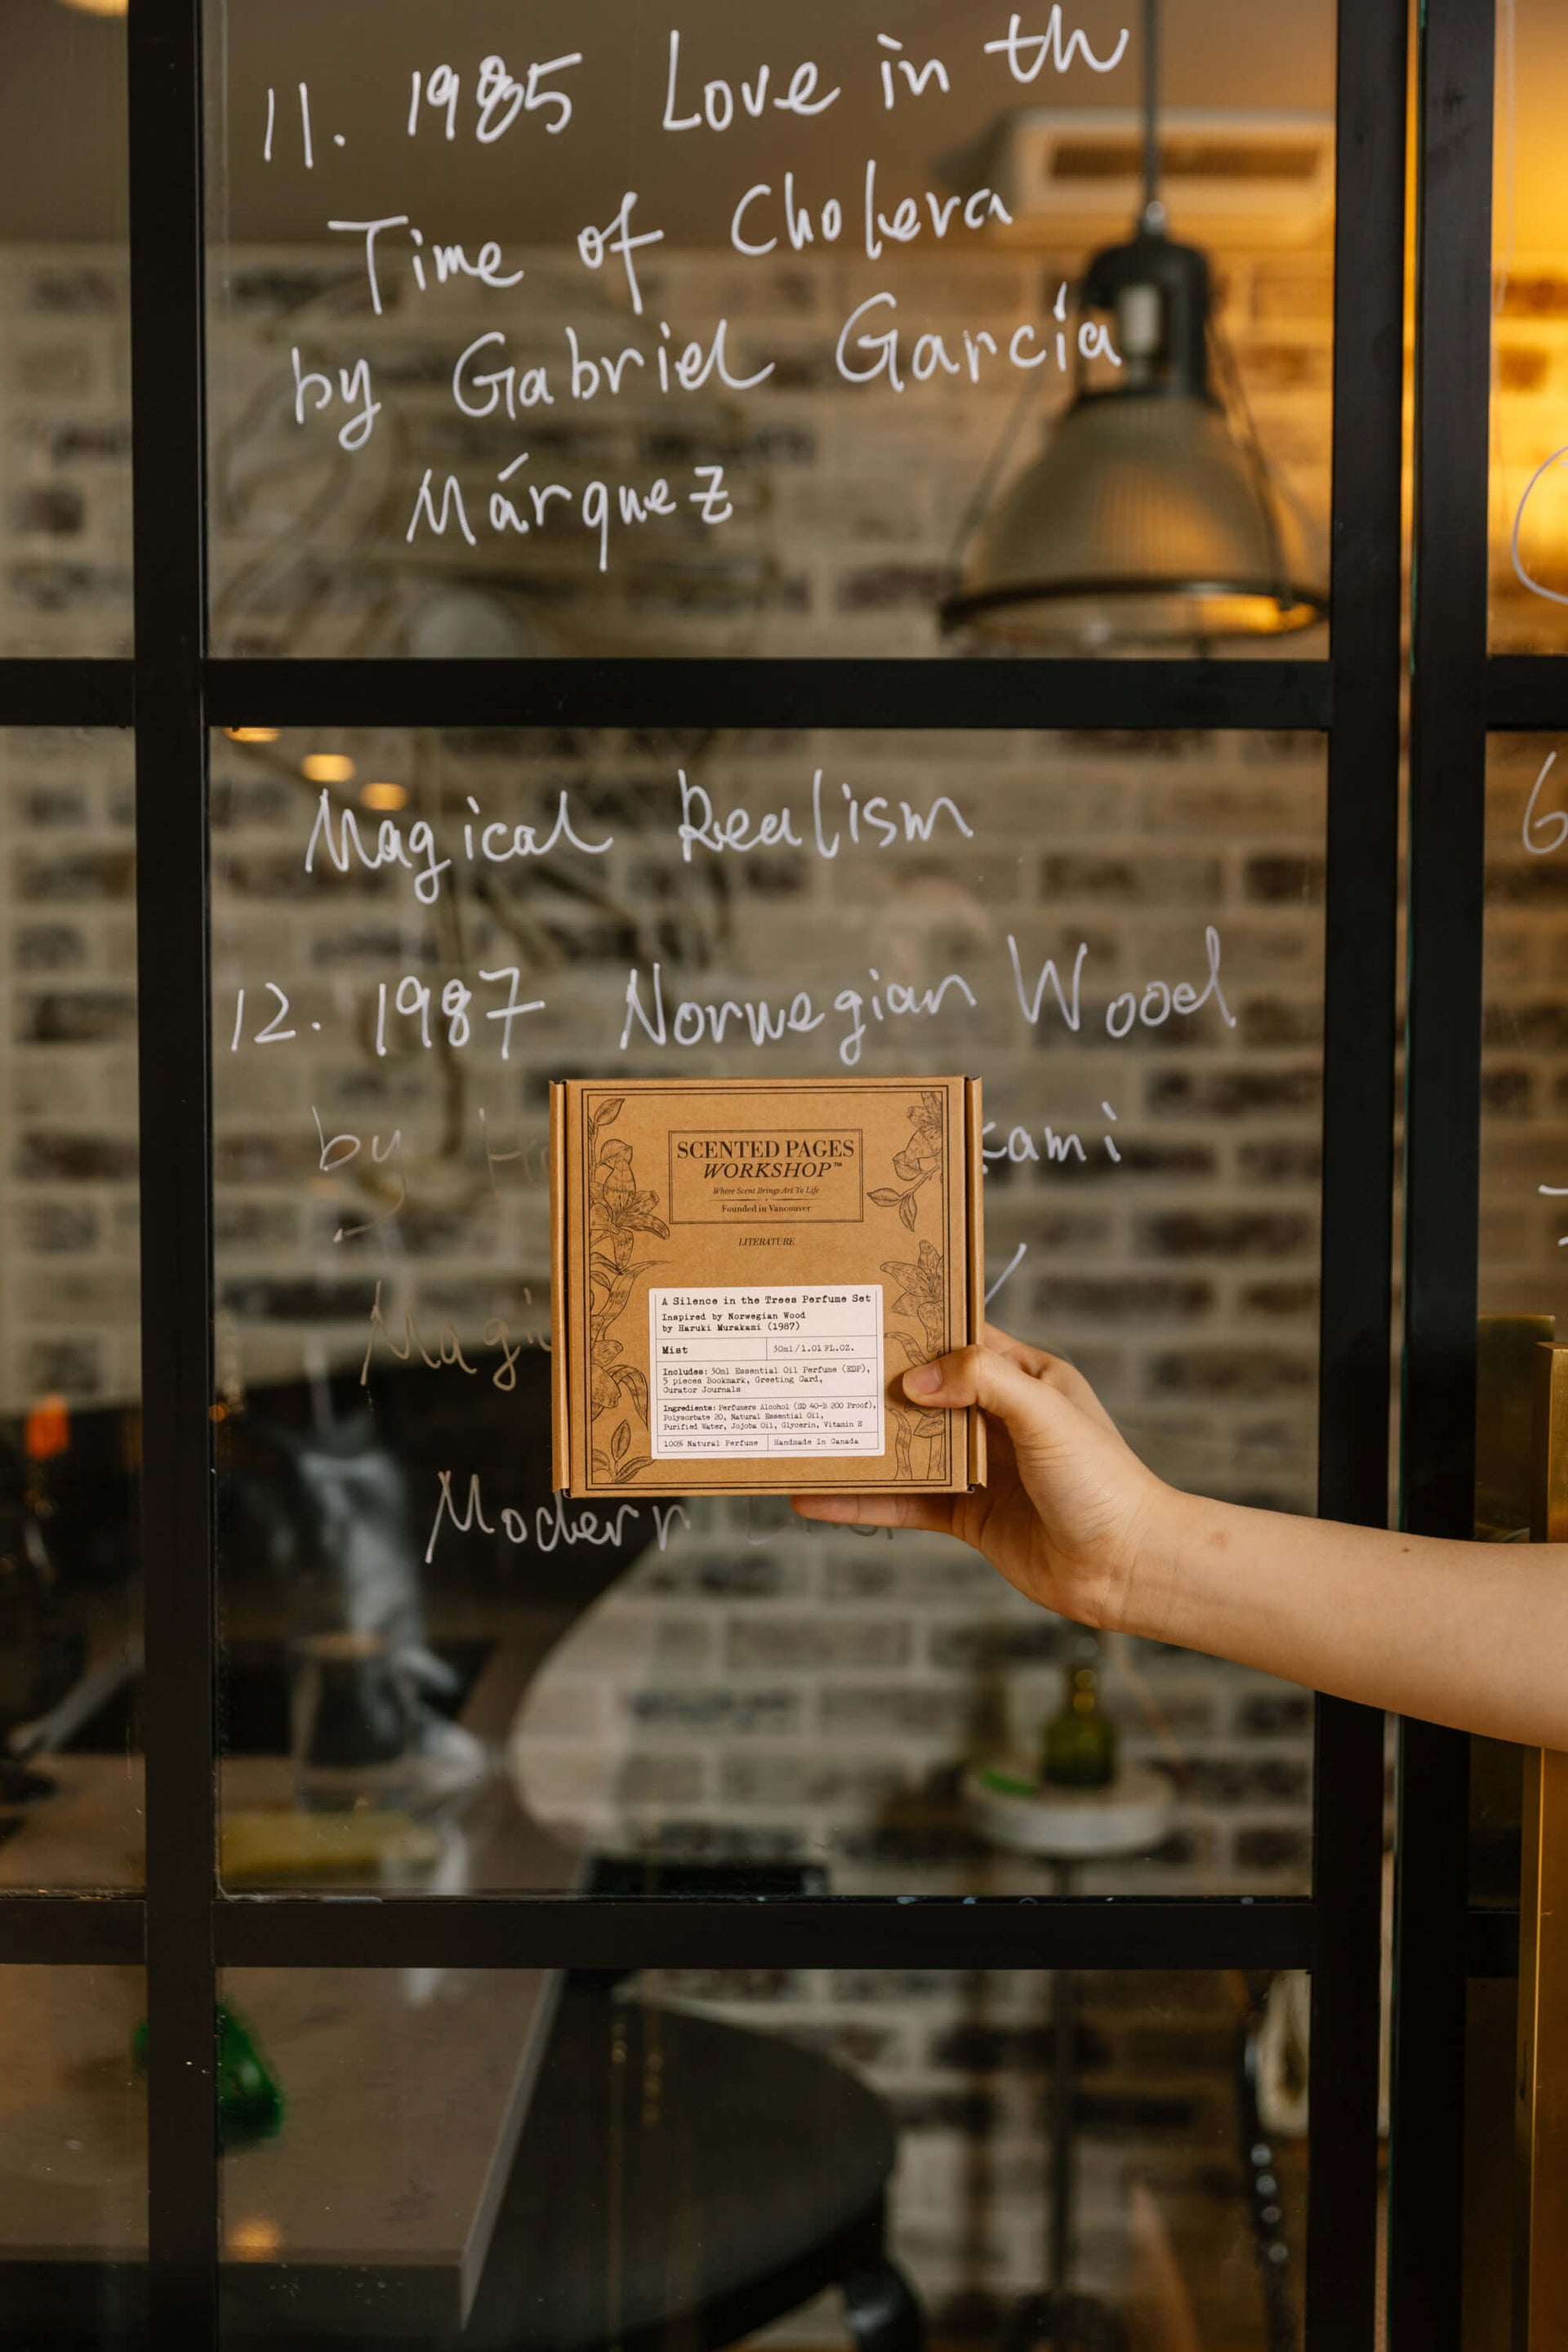 11. 1985 Love in th
Time of Cholera
by Gabriel García
Márquez
Magical Realism
12. 1987 Norwegian Wood
by kami
Magi
Modern
SCENTED PAGES
WORKSHOP™
Where Scent Brings Art To Life
Founded in Vancouver
LITERATURE
A Silence in the Trees Perfume Set
Inspired by Norwegian Wood
by Haruki Murakami (1987)
Mist 30ml/1.01 FL.OZ.
Includes: 30ml Essential Oil Perfume (EDP),
5 pieces Bookmark, Greeting Card,
Curator Journals
Ingredients: Perfumers Alcohol (SD 40-B 200 Proof),
Polysorbate 20, Natural Essential Oil,
Purified Water, Jojoba Oil, Glycerin, Vitamin E
100% Natural Perfume Handmade In Canada